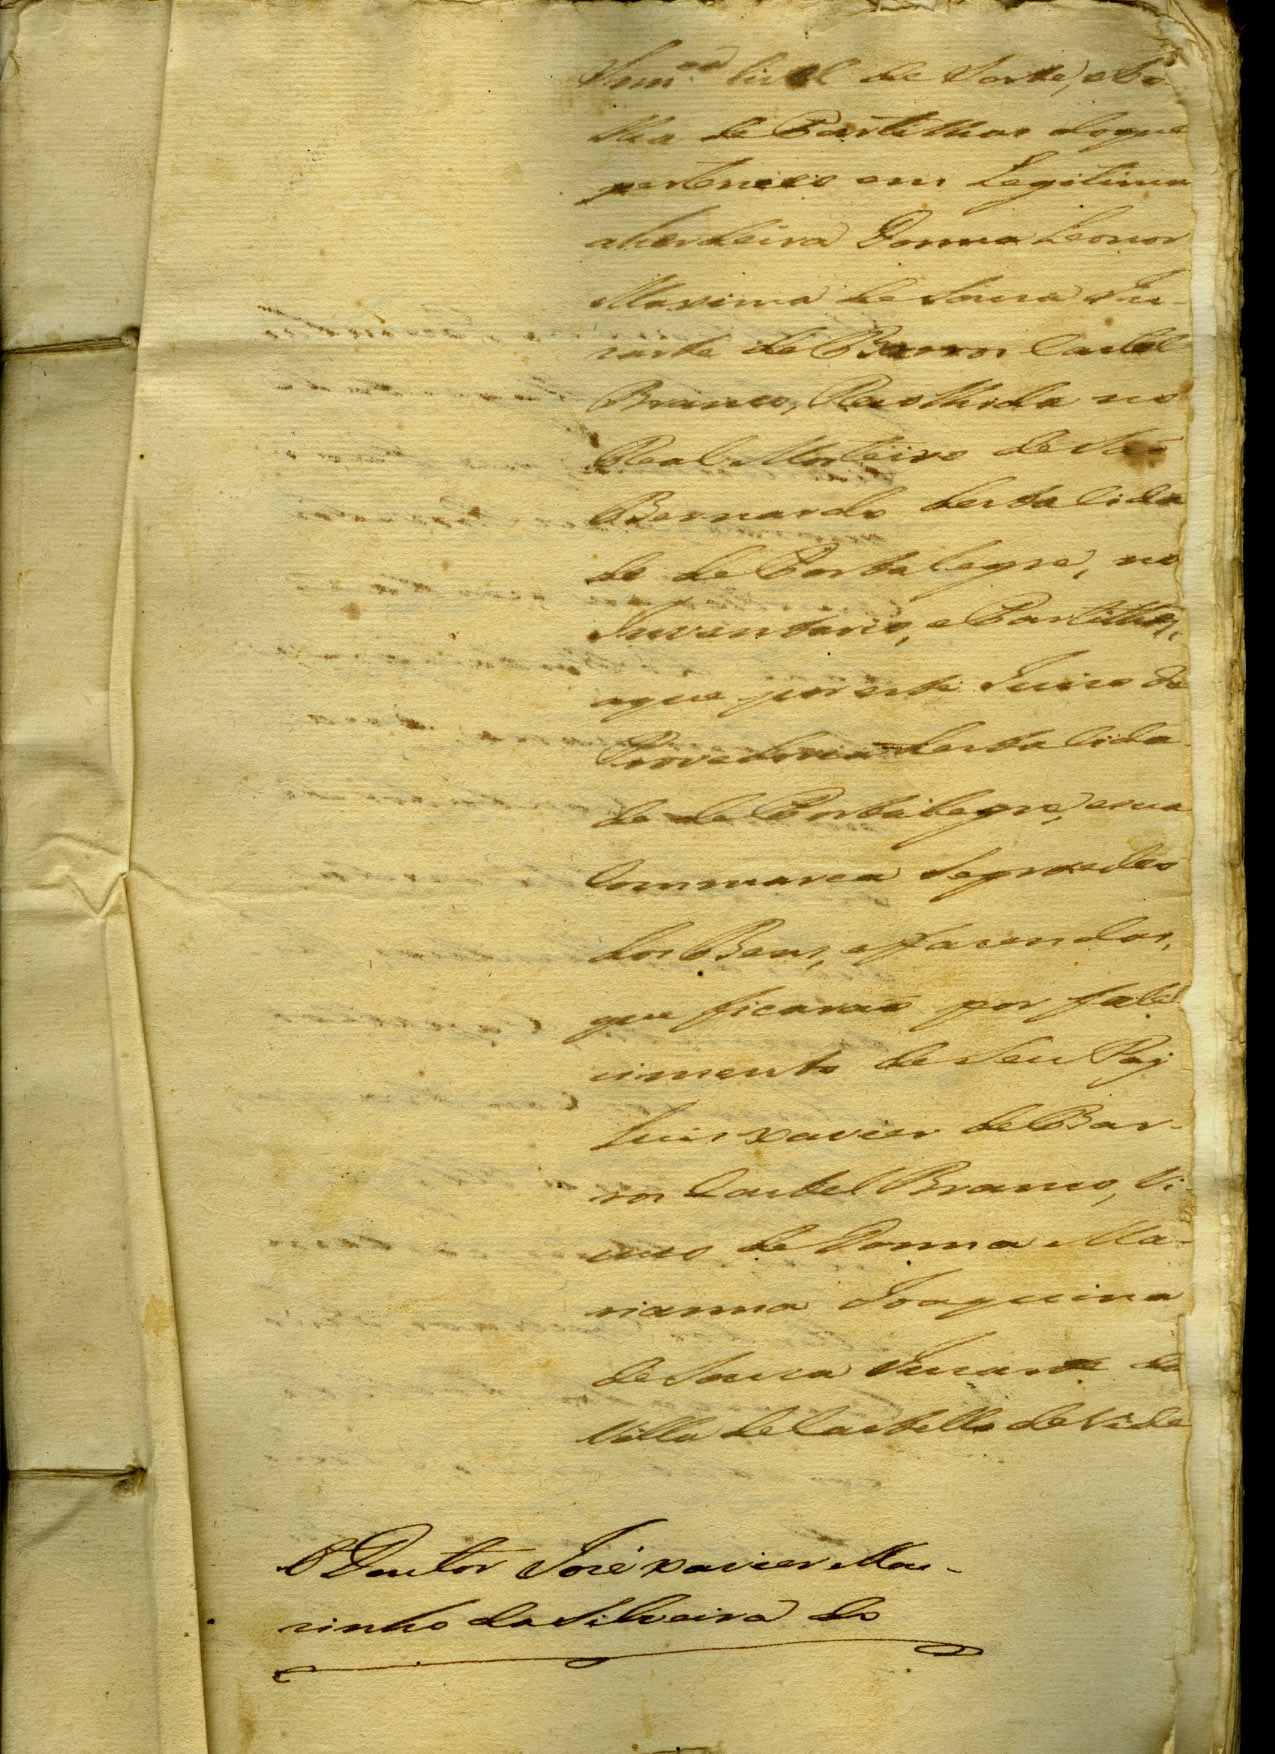 Civel de Sorte, e Fo-
lha de Partilhas do que
pertenceo em Legitima
a herdeira Donna Leonor
Maxima de Souza Tu-
rarte de Barros Castel
Branco, Recolhida no
Real Mosteiro de São
Bernardo desta Cida
de de Portalegre, no
Inventario, e Partilhas,
a que por este Juizo da
Provedoria desta Cida
de de Portalegre, e sua
Commarca se procedeo
dos Bens, e fazendas,
que ficarão por fale
cimento de Seu Pay
Luis Xavier de Bar-
ros Castel Branco, Vi-
uvo de Donna Ma-
rianna Joaquina
de Souza da
Villa de Castello de Vide
O Doutor José Xavier Mou-
zinho da Silveira do